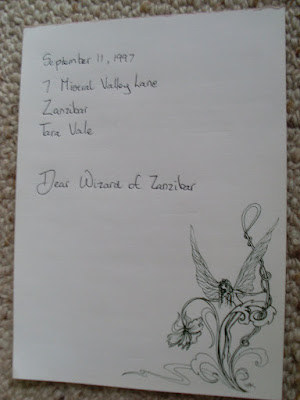 September 11, 1997
7 Mineral Valley Lane
Zanzibar
Tara Vale
Dear Wizard of Zanzibar